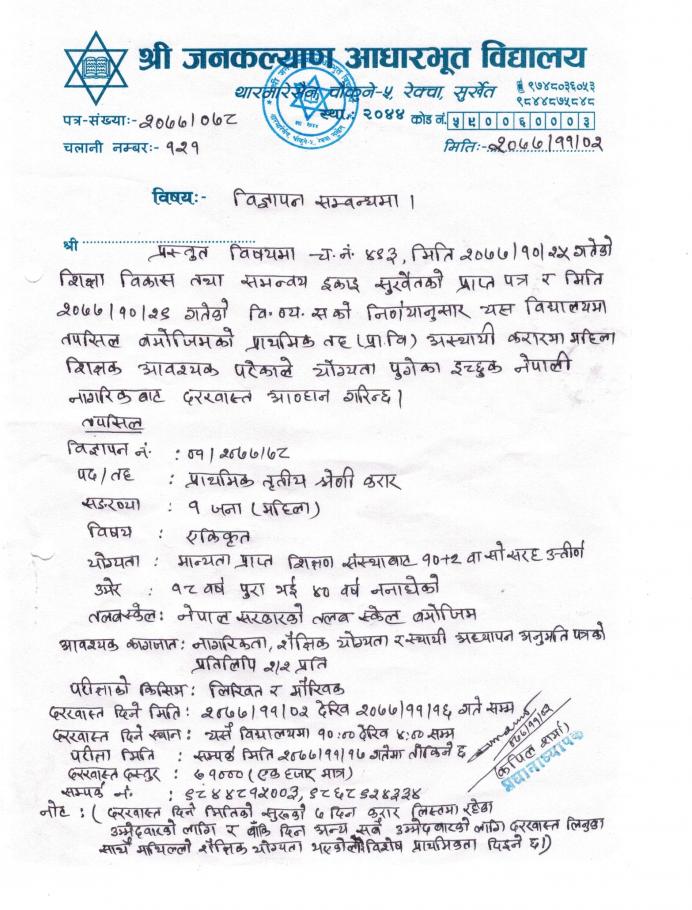 श्री जनकल्याण आधारभूत विद्यालय
थारमारे सैन, चौकुने-५, रेक्चा, सुर्खेत
९७४८०३६०५३
९८४४८७५८४८
पत्र-संख्याः- २०७७/०७८
स्था.: २०४४ कोड नं. ५९००६०००३
चलानी नम्बरः- १२१
मितिः- २०७७/११/०२
विषयः- विज्ञापन सम्बन्धमा ।
श्री
प्रस्तुत विषयमा च.नं. ४९३, मिति २०७७/१०/२५ गतेको
शिक्षा विकास तथा समन्वय इकाइ सुर्खेतको प्राप्त पत्र र मिति
२०७७/१०/२९ गतेको वि.व्य.स को निर्णयानुसार यस विद्यालयमा
तपसिल बमोजिमको प्राथमिक तह (प्रा.वि) अस्थायी करारमा महिला
शिक्षक आवश्यक परेकाले योग्यता पुगेका इच्छुक नेपाली
नागरिक बाट दरखास्त आव्हान गरिन्छ ।
तपसिल
विज्ञापन नं. : ०१/२०७७/७८
पद/तह : प्राथमिक तृतीय श्रेणी करार
सङख्या : १ जना (महिला)
विषय : एकिकृत
योग्यता : मान्यता प्राप्त शिक्षण संस्थाबाट १०+२ वा सो सरह उत्तीर्ण
उमेर : १८ वर्ष पुरा भई ४० वर्ष ननाघेको
तलबस्केल: नेपाल सरकारको तलब स्केल बमोजिम
आवश्यक कागजात: नागरिकता, शैक्षिक योग्यता र स्थायी अध्यापन अनुमति पत्रको
प्रतिलिपि २/२ प्रति
परीक्षाको किसिम: लिखित र मौखिक
दरखास्त दिने मिति: २०७७/११/०२ देखि २०७७/११/१६ गते सम्म
दरखास्त दिने स्थान: यसै विद्यालयमा १०:०० देखि ४:०० सम्म
परीक्षा मिति : सम्पर्क मिति २०७७/११/१७ गतेमा तोकिने छ
दरखास्त दस्तुर : रु १००० (एक हजार मात्र)
सम्पर्क नं. : ९८४४८१२००३, ९८६८९२४३३४
२०७७/११/०२
कपिल शर्मा)
प्रधानाध्यापक
नोट : ( दरखास्त दिने मितिको सुरुको ७ दिन करार लिस्टमा रहेका
उम्मेदवारको लागि र बाँकि दिन अन्य सबै उम्मेदवारको लागि दरखास्त लिनुका
साथै माथिल्लो शैक्षिक योग्यता भएकोलाई विशेष प्राथमिकता दिइने छ।)